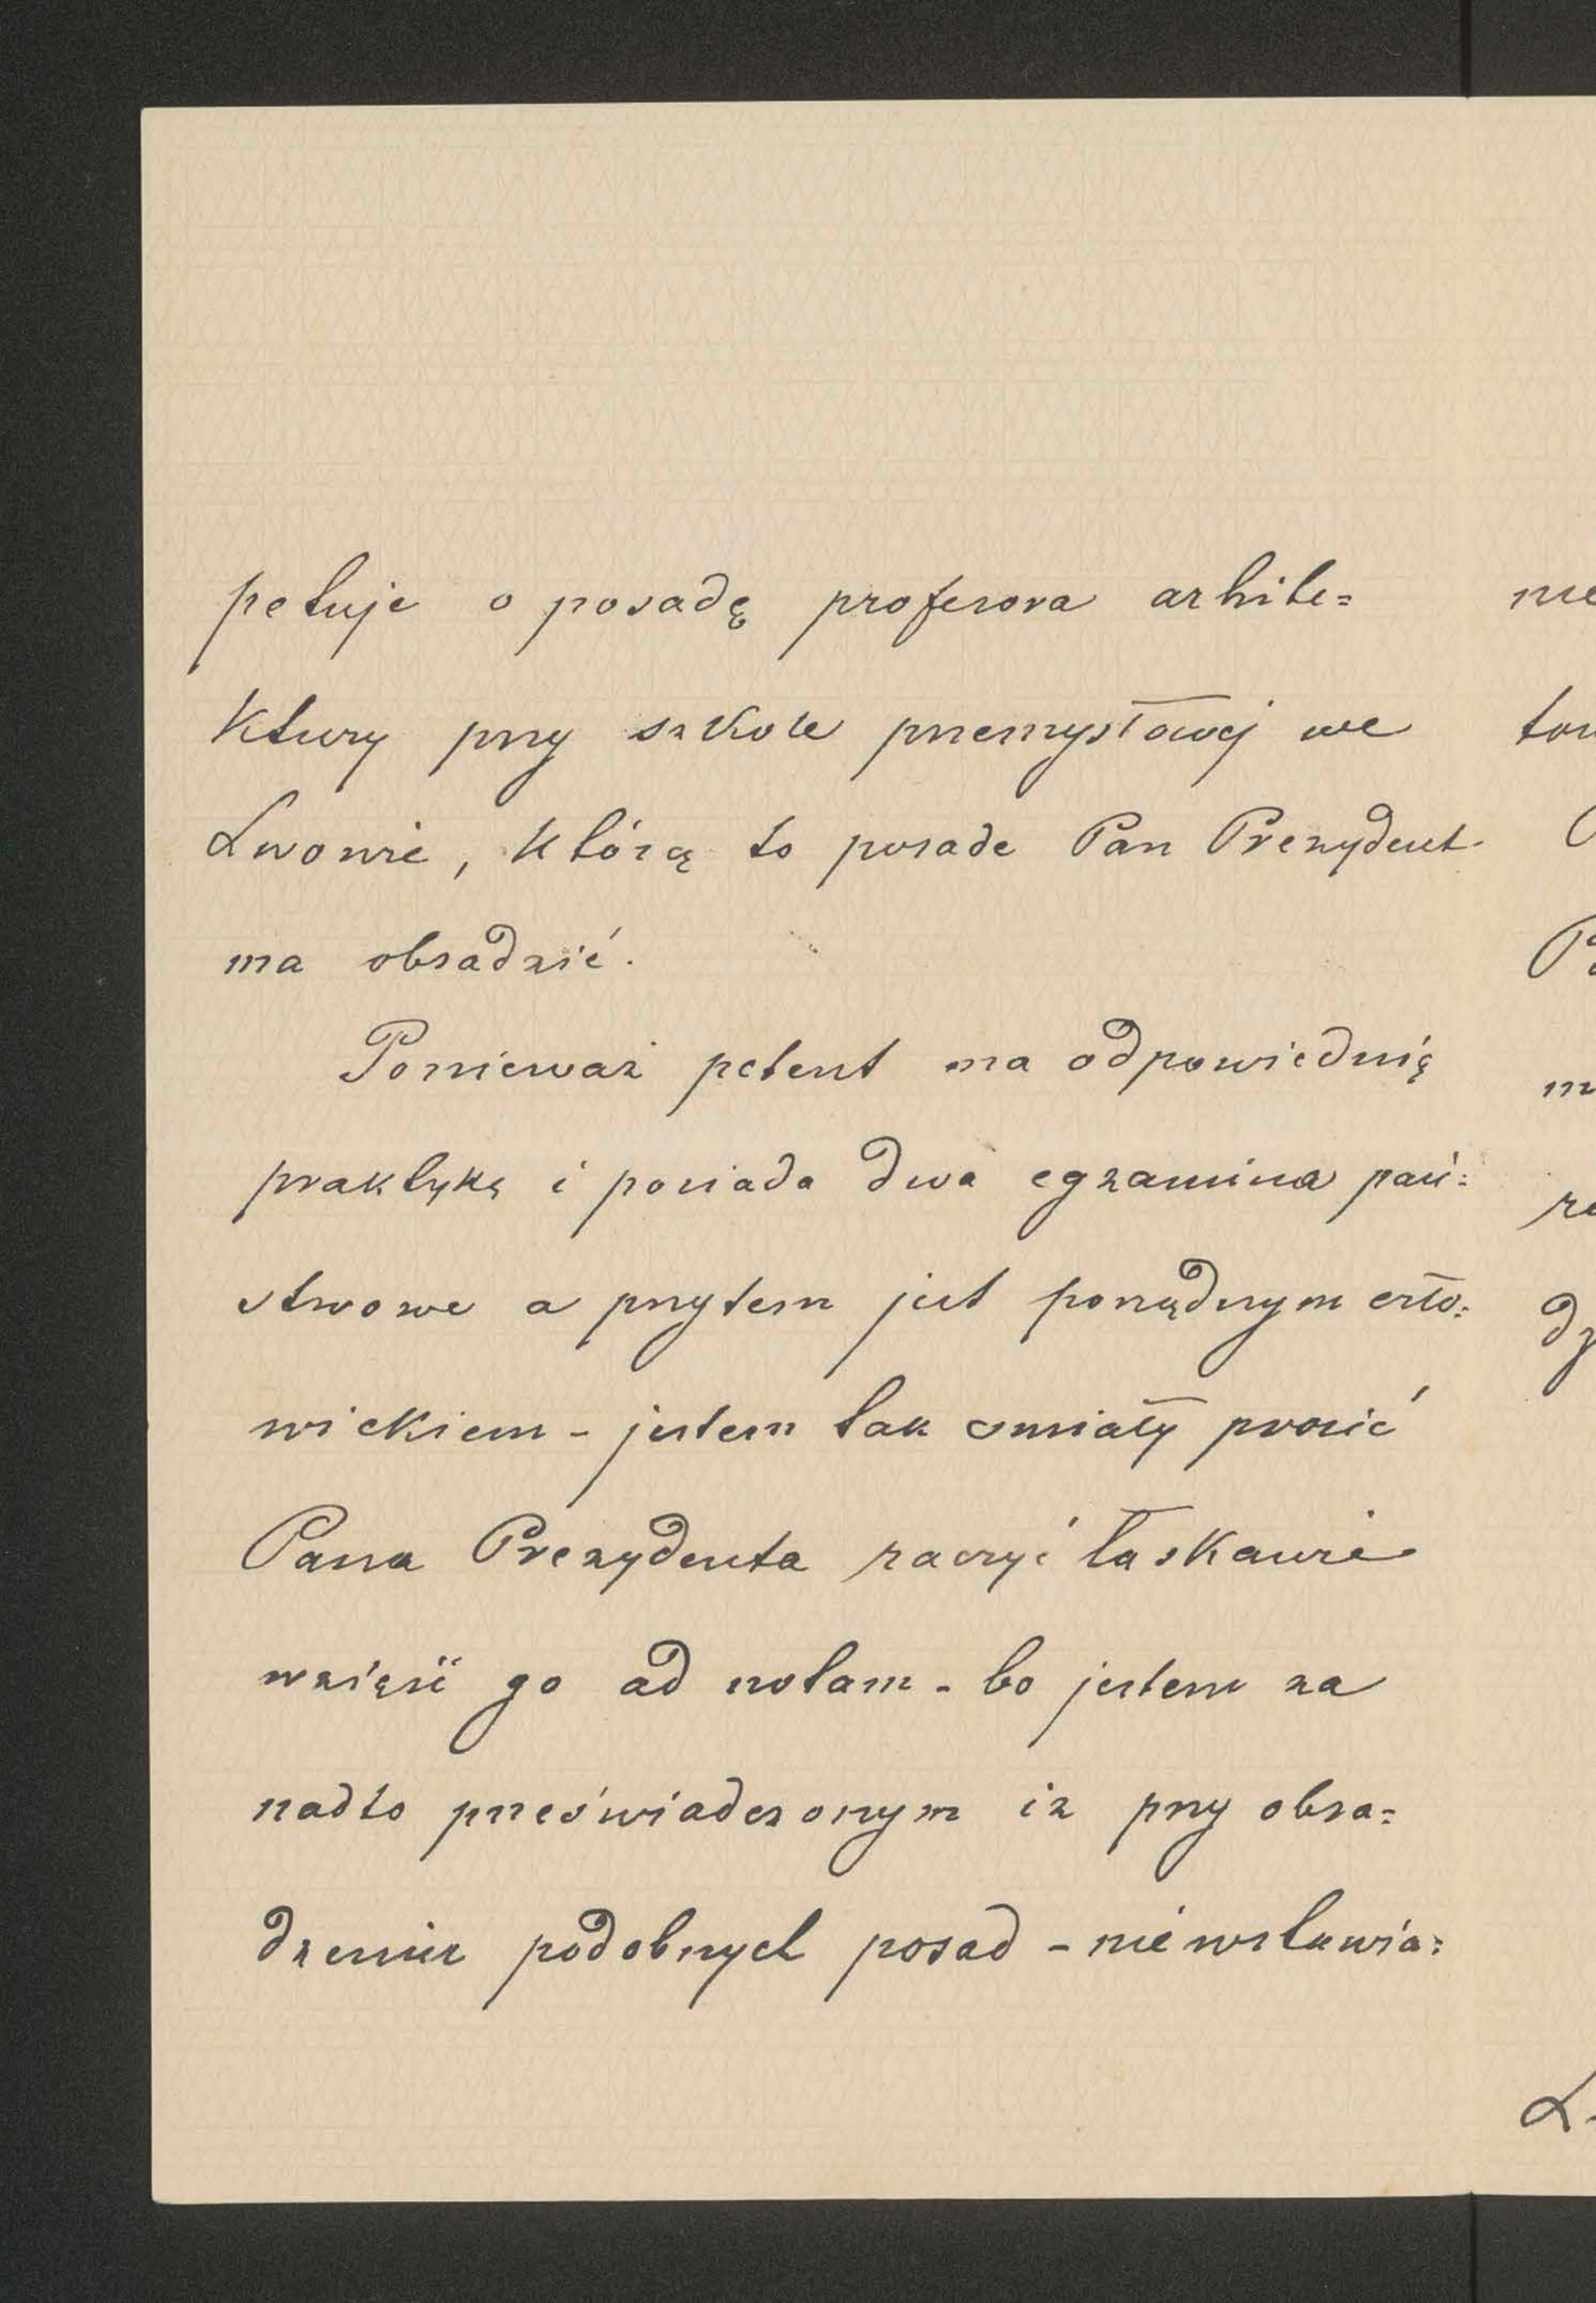 petuje o posadę profesora arhite=
ktury przy szkole przemysłowej we
Lwowie, którą to posade Pan Prezydent
ma obsadzić.
Ponieważ petent ma odpowiednią
praktykę i posiada dwa egzamina pań=
stwowe a przytem jest porządnym czło=
wiekiem - jestem tak śmiały prosić
Pana Prezydenta raczyć łaskawie
wziąść go ad notam - bo jestem za
nadto przeświadczonym iz przy obsa=
dzeniu podobnych posad - nie wstawia=